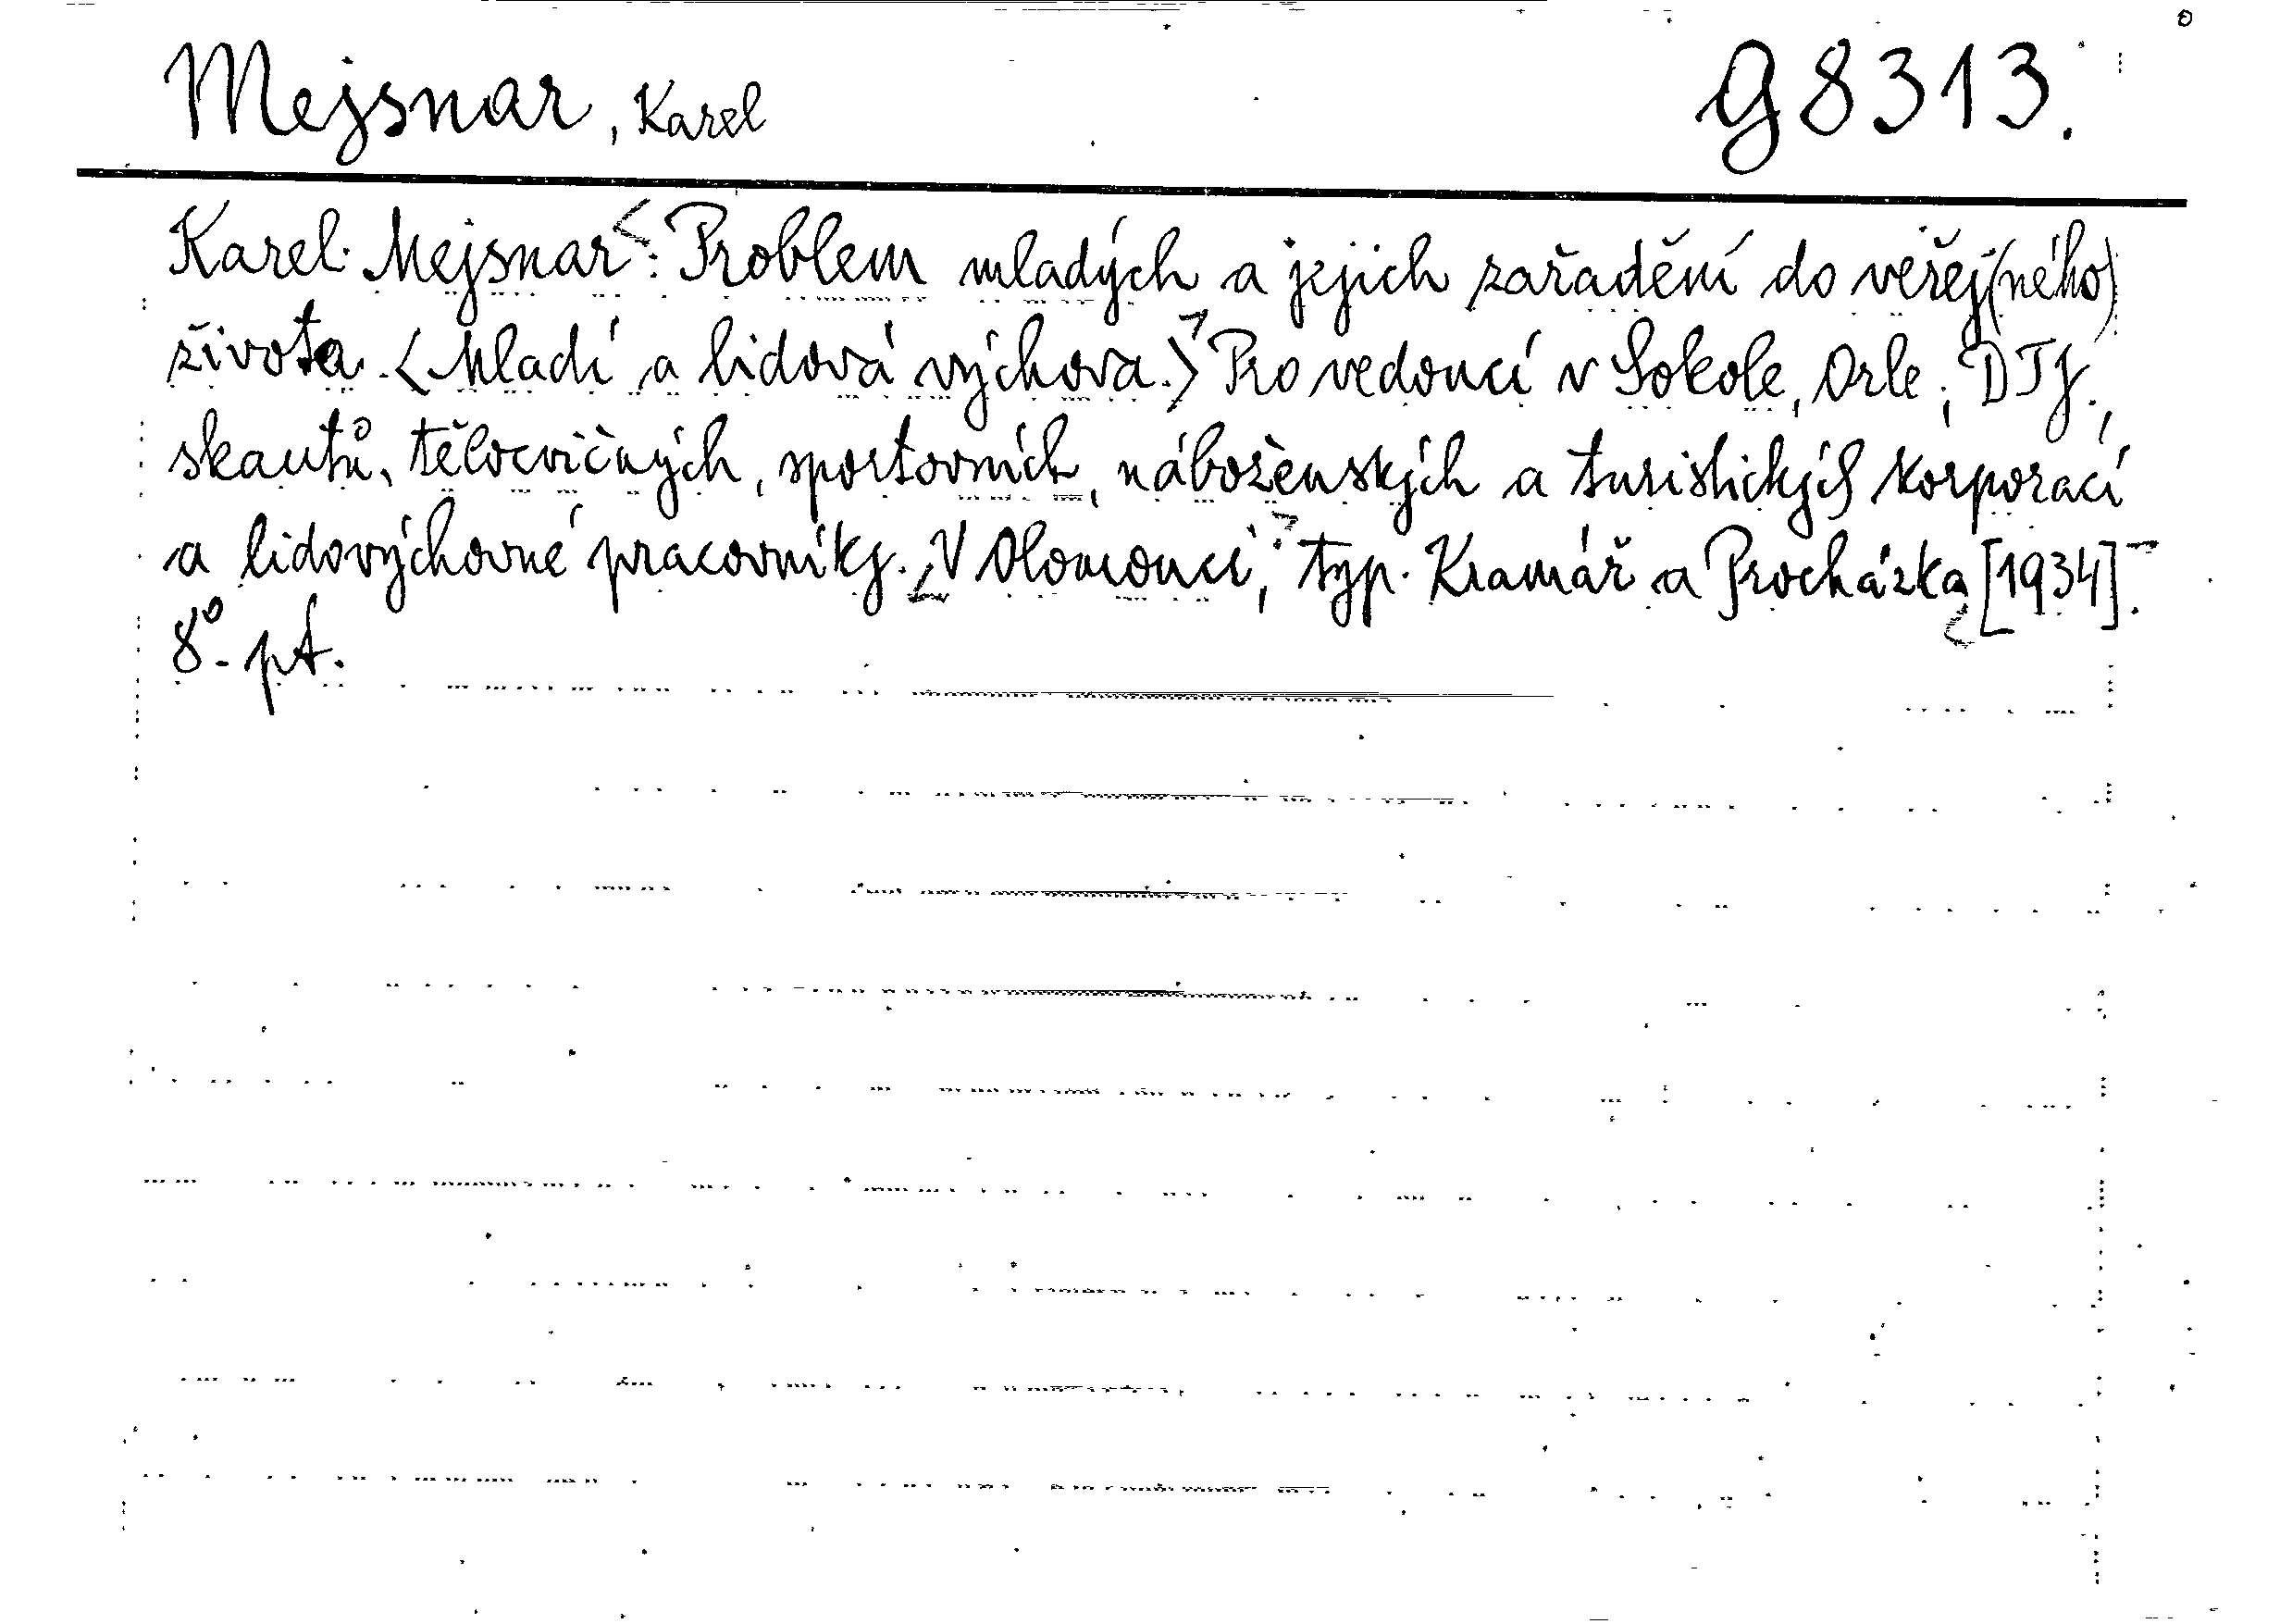 Mejsnar, Karel G 8313.
Karel Mejsnar: Problem mladých a jejich zařadění do veřej(ného)
života. <Mladí a lidová výchova.> Pro vedoucí v Sokole, Orle, DTJ.,
skautů, tělocvičných, sportovních, náboženských a turistických korporací
a lidovýchovné pracovníky. V Olomouci, typ. Kramář a Procházka [1934].
8° pt.